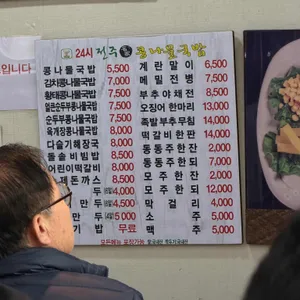 입니다
24시 전주 콩나물국밥
콩나물국밥 5,500
김치콩나물국밥 7,500
황태콩나물국밥 7,500
얼큰순두부콩나물국밥 8,000
순두부콩나물국밥 7,500
육개장콩나물국밥 8,000
다슬기해장국 8,000
돌솥비빔밥 8,000
어린이떡갈비 8,000
돈까스 8,000
만두 4,000
만두 4,000
공기밥 무료
계란말이 6,500
메밀전병 7,500
부추야채전 8,500
오징어한마리 13,000
족발부추무침
떡갈비한판 14,000
동동주한잔 2,000
동동주한되
모주한잔 2,000
모주한되 12,000
막걸리 4,000
소주 5,000
맥주 5,000
모든메뉴 포장가능